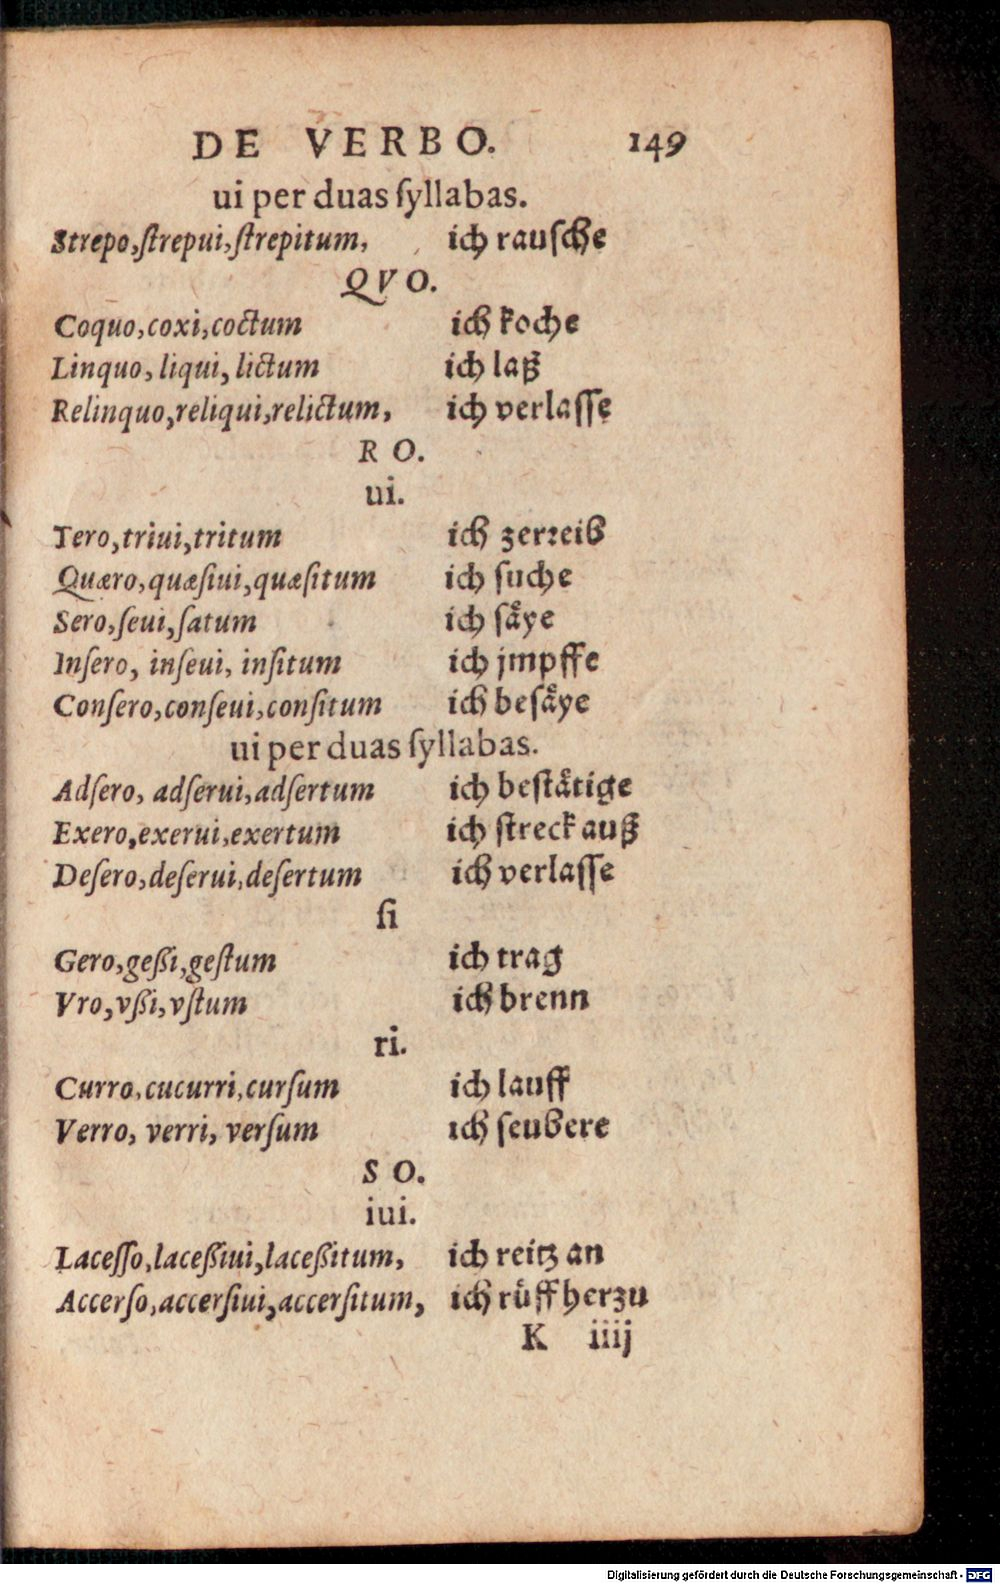 DE VERBO. 149
ui per duas ſyllabas.
Strepo,ſtrepui,ſtrepitum, ich rauſche
QVO.
Coquo,coxi,coctum ich koche
Linquo, liqui, lictum ich laß
Relinquo,reliqui,relictum, ich verlaſſe
R O.
ui.
Tero,triui,tritum ich zerꝛeib
Quæro,quæſiui,quæſitum ich ſuche
Sero,ſeui,ſatum ich ſaͤye
Inſero, inſeui, inſitum ich jmpffe
Conſero,conſeui,conſitum ich beſaͤye
ui per duas ſyllabas.
Adſero, adſerui,adſertum ich beſtaͤtige
Exero,exerui,exertum ich ſtreck auß
Deſero,deſerui,deſertum ich verlaſſe
ſi
Gero,geßi,geſtum ich trag
Vro,vßi,vſtum ich brenn
ri.
Curro,cucurri,curſum ich lauff
Verro, verri, verſum ich ſeubere
S O.
iui.
Laceſſo,laceßiui,laceßitum, ich reitz an
Accerſo,accerſiui,accerſitum, ich ruͤff herzu
K iiij
Digitalisierung gefördert durch die Deutsche Forschungsgemeinschaft - DFG